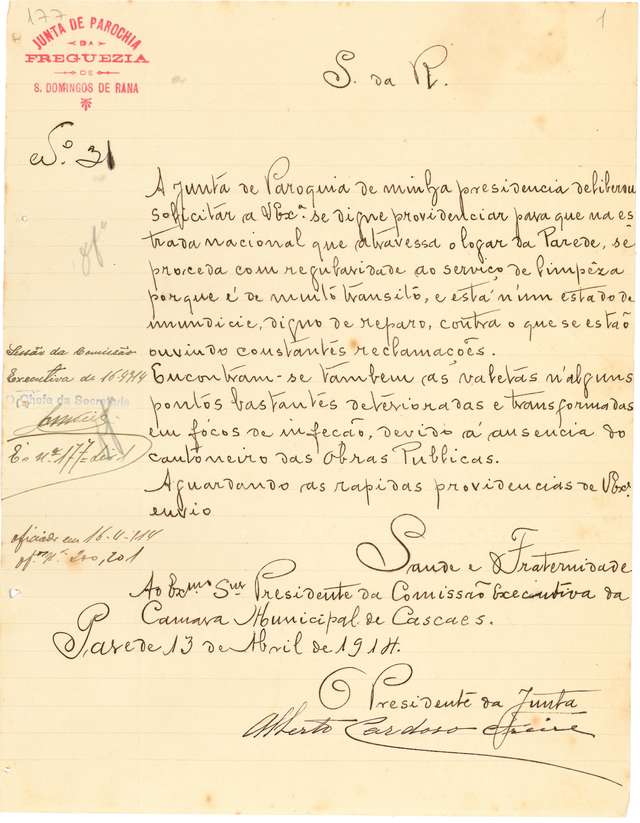 177
1
JUNTA DE PAROCHIA
DA
FREGUEZIA
DE
S. DOMINGOS DE RANA
S. da R.
Nº 31
A Junta de Paroquia de minha presidencia deliberou
solicitar a V Exª. se digne providenciar para que na es
trada nacional que atravessa o logar da Parede, se
proceda com regularidade ao serviço de limpêza
porque é de muito transito, e está n'um estado de
imundicie, digno de reparo, contra o que se estão
ouvindo constantes reclamações.
Encontram-se tambem as valetas n'alguns
pontos bastantes deterioradas e transformadas
em fócos de infeção, devido á ausencia do
cantoneiro das Obras Publicas.
Aguardando as rapidas providencias de V Exª
envio
Saude e Fraternidade
Ao Exmo Snr Presidente da Comissão Executiva da
Camara Municipal de Cascaes.
Parede 13 de Abril de 1914.
O Presidente da Junta
Alberto Cardoso Freire
Sessão da Comissão
Executiva de 16-4-914
O Chefe da Secretaria
E. nº 177
oficiado em 16-4-914
of.os Nos 200, 201